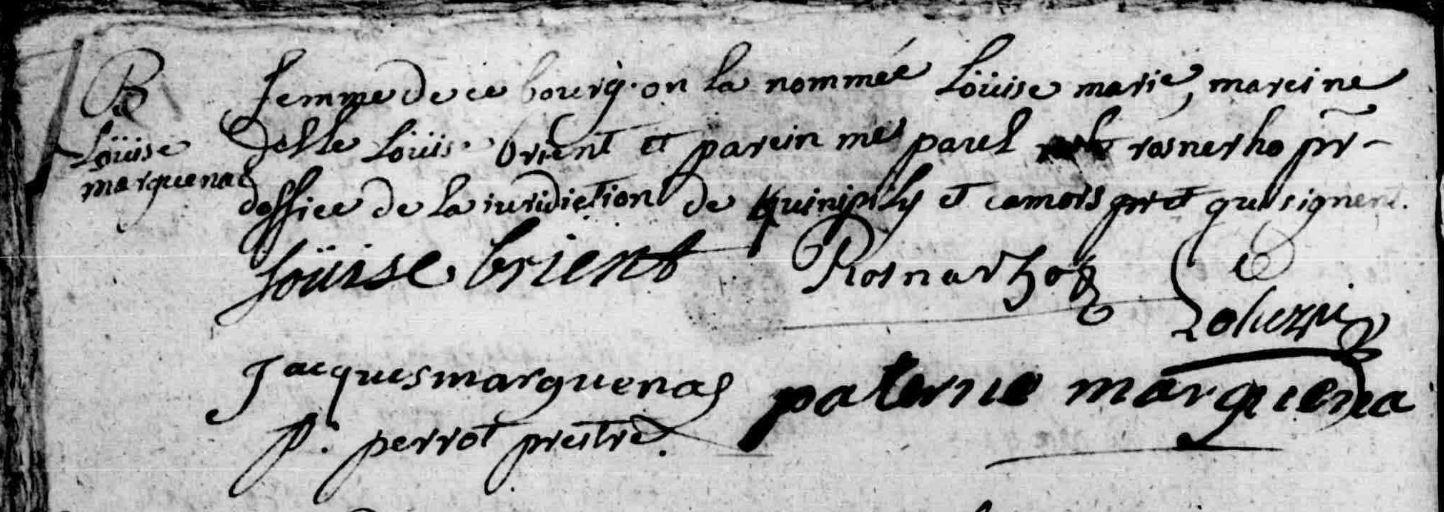 B
Loüise
marquenas
femme de ce bourg. on la nommée Loüise marie, mareine
delle Loüise brient et parein me paul rosnerho pr
doffice de la iuridiction de quinipily et camors pret qui signent.
Loüise brient Rosnarho Le
Jacques marguenas paterne marguena
p. perrot prestre.